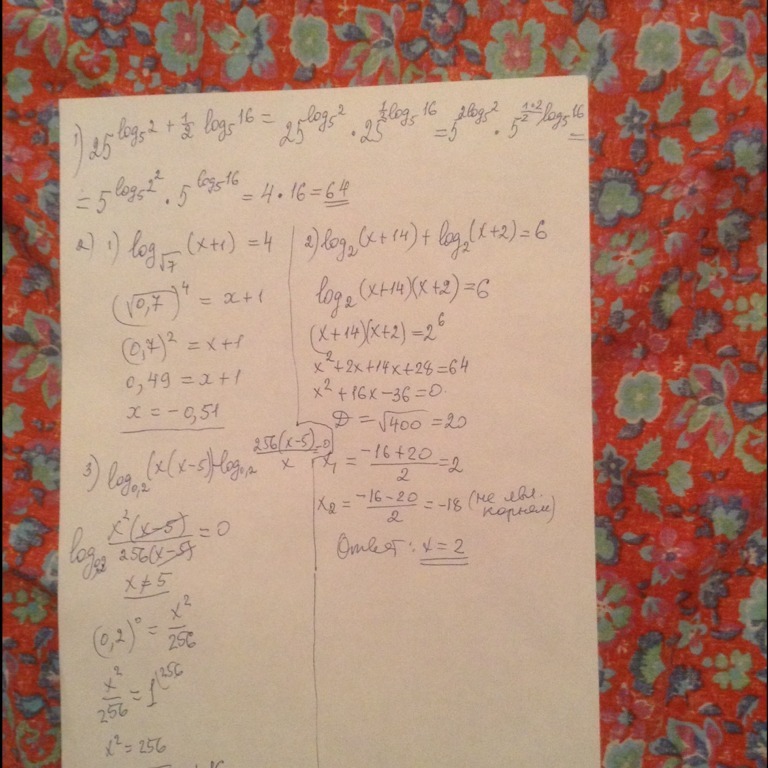 1) 25^{log₅2 + ½ log₅16} = 25^{log₅2} · 25^{½ log₅16} = 5^{2log₅2} · 5^{(1·2)/2 log₅16} =
= 5^{log₅2²} · 5^{log₅16} = 4 · 16 = 64
2) 1) log_{√7} (x+1) = 4
(√0,7)⁴ = x+1
(0,7)² = x+1
0,49 = x+1
x = -0,51
2) log₂(x+14) + log₂(x+2) = 6
log₂(x+14)(x+2) = 6
(x+14)(x+2) = 2⁶
x²+2x+14x+28 = 64
x²+16x-36 = 0
D = √400 = 20
x₁ = (-16+20)/2 = 2
x₂ = (-16-20)/2 = -18 (не явл. корнем)
Ответ: x = 2
3) log_{0,2} (x(x-5) - log_{0,2} 256(x-5)/x = 0
log_{0,2} x²(x-5)/256(x-5) = 0
x ≠ 5
(0,2)⁰ = x²/256
x²/256 = 1^{(256}
x² = 256